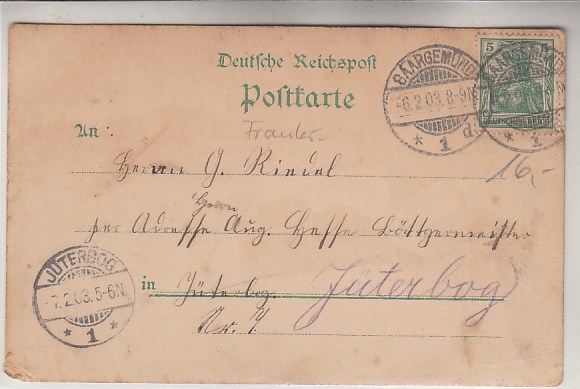 Deutsche Reichspost
Postkarte
SAARGEMÜND
-6.2.03.8-9N.
* 1 d *
SAARGEMÜND
* 1
5
DEUTSCHES REICH
An
Herrn G. Riedel
Herrn
per Adresse Aug. Hesse Böttgermeister
in Jüterbog. Jüterbog
16,-
JÜTERBOG
-7.2.03.5-6N.
* 1 *